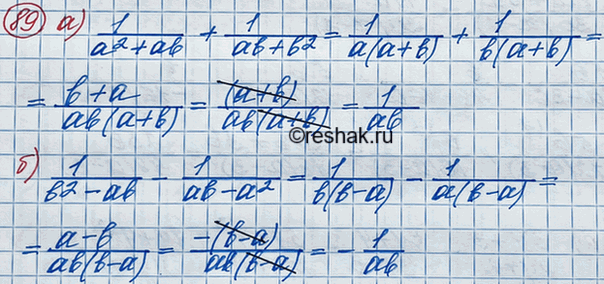 89 а) 1/(a²+ab) + 1/(ab+b²) = 1/(a(a+b)) + 1/(b(a+b)) =
= (b+a)/(ab(a+b)) = (a+b)/(ab(a+b)) = 1/(ab)
©reshak.ru
б) 1/(b²-ab) - 1/(ab-a²) = 1/(b(b-a)) - 1/(a(b-a)) =
= (a-b)/(ab(b-a)) = -(b-a)/(ab(b-a)) = -1/(ab)